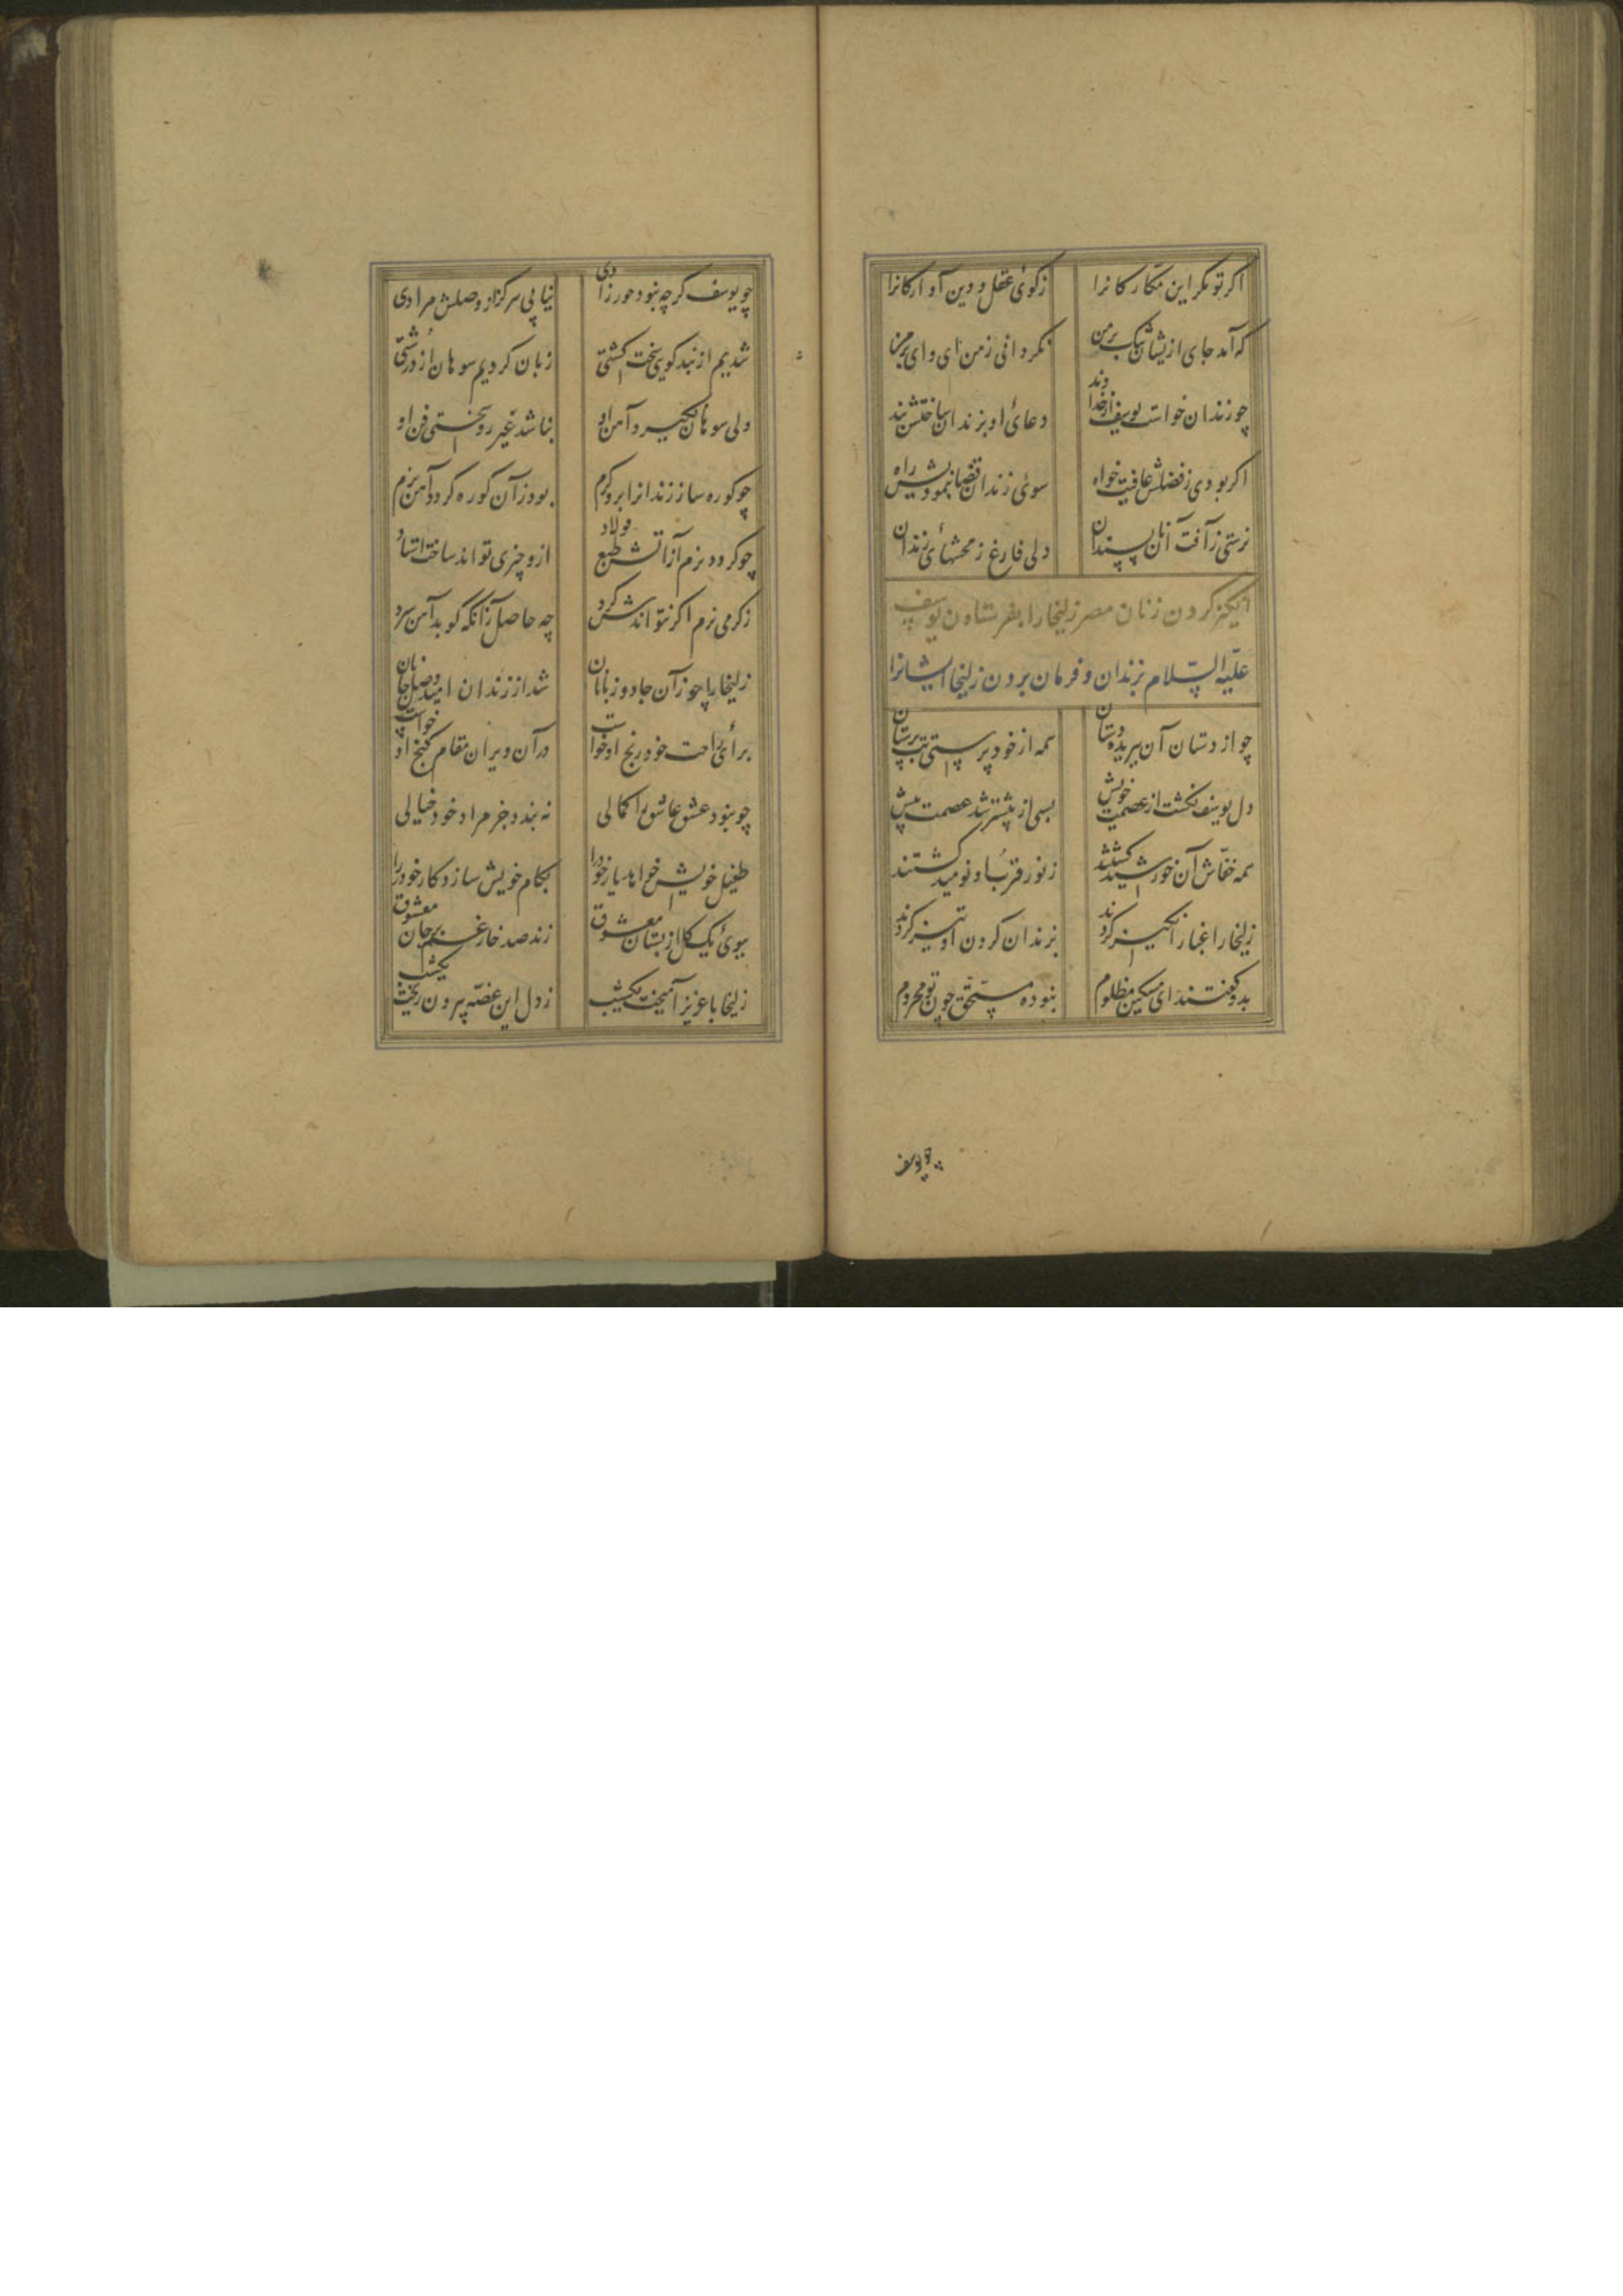 اکر تو مکر این مکّارکانرا زکوی عقل و دین آوارکانرا
نکردانی ز من ای وای بر من که آمد جای ازیشان تنک بر من
چو زندان خواست یوسف از خداوند دعای او بزندان ساختش بند
اکر بودی ز فضلش عافیت خواه سوی زندان قضا ننمودیش راه
برستی ز آفت آن ناپسندان دلی فارغ ز محنتهای زندان
انکیز کردن زنان مصر زلیخا را بفرستادن یوسف
علیه السّلام بزندان و فرمان بردن زلیخا ایشانرا
چو از دستان آن ببریده دستان همه از خود پرستی بت پرستان
دل یوسف نکشت از عصمت خویش بسی از پیشتر شد عصمتش بیش
همه خفّاش آن خورشید کشتند ز نور قرب او نومید کشتند
زلیخا را غبار انکیز کردند بزندان کردن او تیز کردند
بدو کفتند ای مسکین مظلوم نبوده مستحق چون تو محروم
چو یوسف
چو یوسف کرچه نبود حورزادی نیابی هرکز از وصلش مرادی
شدیم از پند کویی سخت کشتی زبان کردیم سوهان از درشتی
ولی سوهان نکیرد آهن او نباشد غیر سختی فن او
چو کوره ساز زندانرا برو کرم بود زان کوره کردد آهنش نرم
چو کردد نرم از آتش طبع فولاد ازو چیزی تواند ساخت استاد
ز کرمی نرم اکر نتواندش کرد چه حاصل زانکه کوبد آهن سرد
زلیخا را چو زان جادو زبانان شد از زندان امید وصل جانان
برای راحت خود رنج او خواست در آن ویران مقام کنج او خواست
چو نبود عشق عاشق را کمالی نه بندد جز مراد خود خیالی
طفیل خویش خواهد یار خود را بکام خویش سازد کار خود را
ببوی یک کل از بستان معشوق زند صد خار غم بر جان معشوق
زلیخا با عزیز آمیخت یکشب ز دل این غصّه بیرون ریخت یکشب